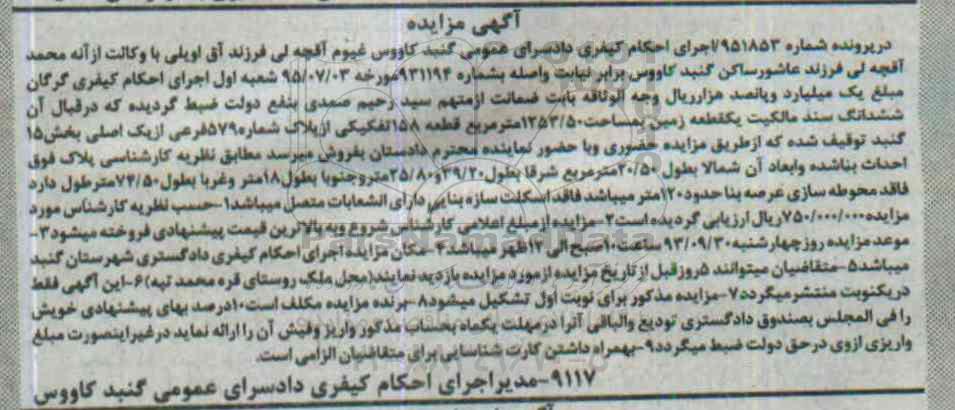 آگهی مزایده
درپرونده شماره ۹۵۱۸۵۳/اجرای احکام کیفری دادسرای عمومی گنبد کاووس غیوم آقچه لی فرزند آق اویلی با وکالت ازآنه محمد
آقچه لی فرزند عاشورساکن گنبد کاووس برابر نیابت واصله بشماره ۹۳۱۱۹۴مورخه ۹۵/۰۷/۰۳ شعبه اول اجرای احکام کیفری گرگان
مبلغ یک میلیارد وپانصد هزارریال وجه الوثاقه بابت ضمانت ازمتهم سید رحیم صمدی بنفع دولت ضبط گردیده که درقبال آن
ششدانگ سند مالکیت یکقطعه زمین بمساحت۱۲۵۳/۵۰مترمربع قطعه ۱۵۸تفکیکی ازپلاک شماره۵۷۹فرعی ازیک اصلی بخش۱۵
گنبد توقیف شده که ازطریق مزایده حضوری وبا حضور نماینده محترم دادستان بفروش میرسد مطابق نظریه کارشناسی پلاک فوق
احداث بناشده وابعاد آن شمالا بطول ۲۰/۵۰مترمربع شرقا بطول۳۹/۲۰و۳۵/۸۰متروجنوبا بطول۱۸متر وغربا بطول۷۴/۵۰مترطول دارد
فاقد محوطه سازی عرصه بنا حدود۱۲۰متر میباشد فاقد اسکلت سازه بنایی دارای انشعابات متصل میباشد۱-حسب نظریه کارشناس مورد
مزایده۷۵۰/۰۰۰/۰۰۰ریال ارزیابی گردیده است۲-مزایده ازمبلغ اعلامی کارشناس شروع وبه بالاترین قیمت پیشنهادی فروخته میشود۳-
موعد مزایده روزچهارشنبه۹۳/۰۹/۳۰ ساعت۱۰صبح الی ۱۲ظهر میباشد۴-مکان مزایده اجرای احکام کیفری دادگستری شهرستان گنبد
میباشد۵-متقاضیان میتوانند ۵روزقبل ازتاریخ مزایده ازمورد مزایده بازدید نمایند(محل ملک روستای قره محمد تپه)۶-این آگهی فقط
دریکنوبت منتشرمیگردد۷-مزایده مذکور برای نوبت اول تشکیل میشود۸-برنده مزایده مکلف است۱۰درصد بهای پیشنهادی خویش
را فی المجلس بصندوق دادگستری تودیع والباقی آنرا درمهلت یکماه بحساب مذکور واریز وفیش آن را ارائه نماید درغیراینصورت مبلغ
واریزی ازوی درحق دولت ضبط میگردد۹-بهمراه داشتن کارت شناسایی برای متقاضیان الزامی است.
۹۱۱۷-مدیراجرای احکام کیفری دادسرای عمومی گنبد کاووس